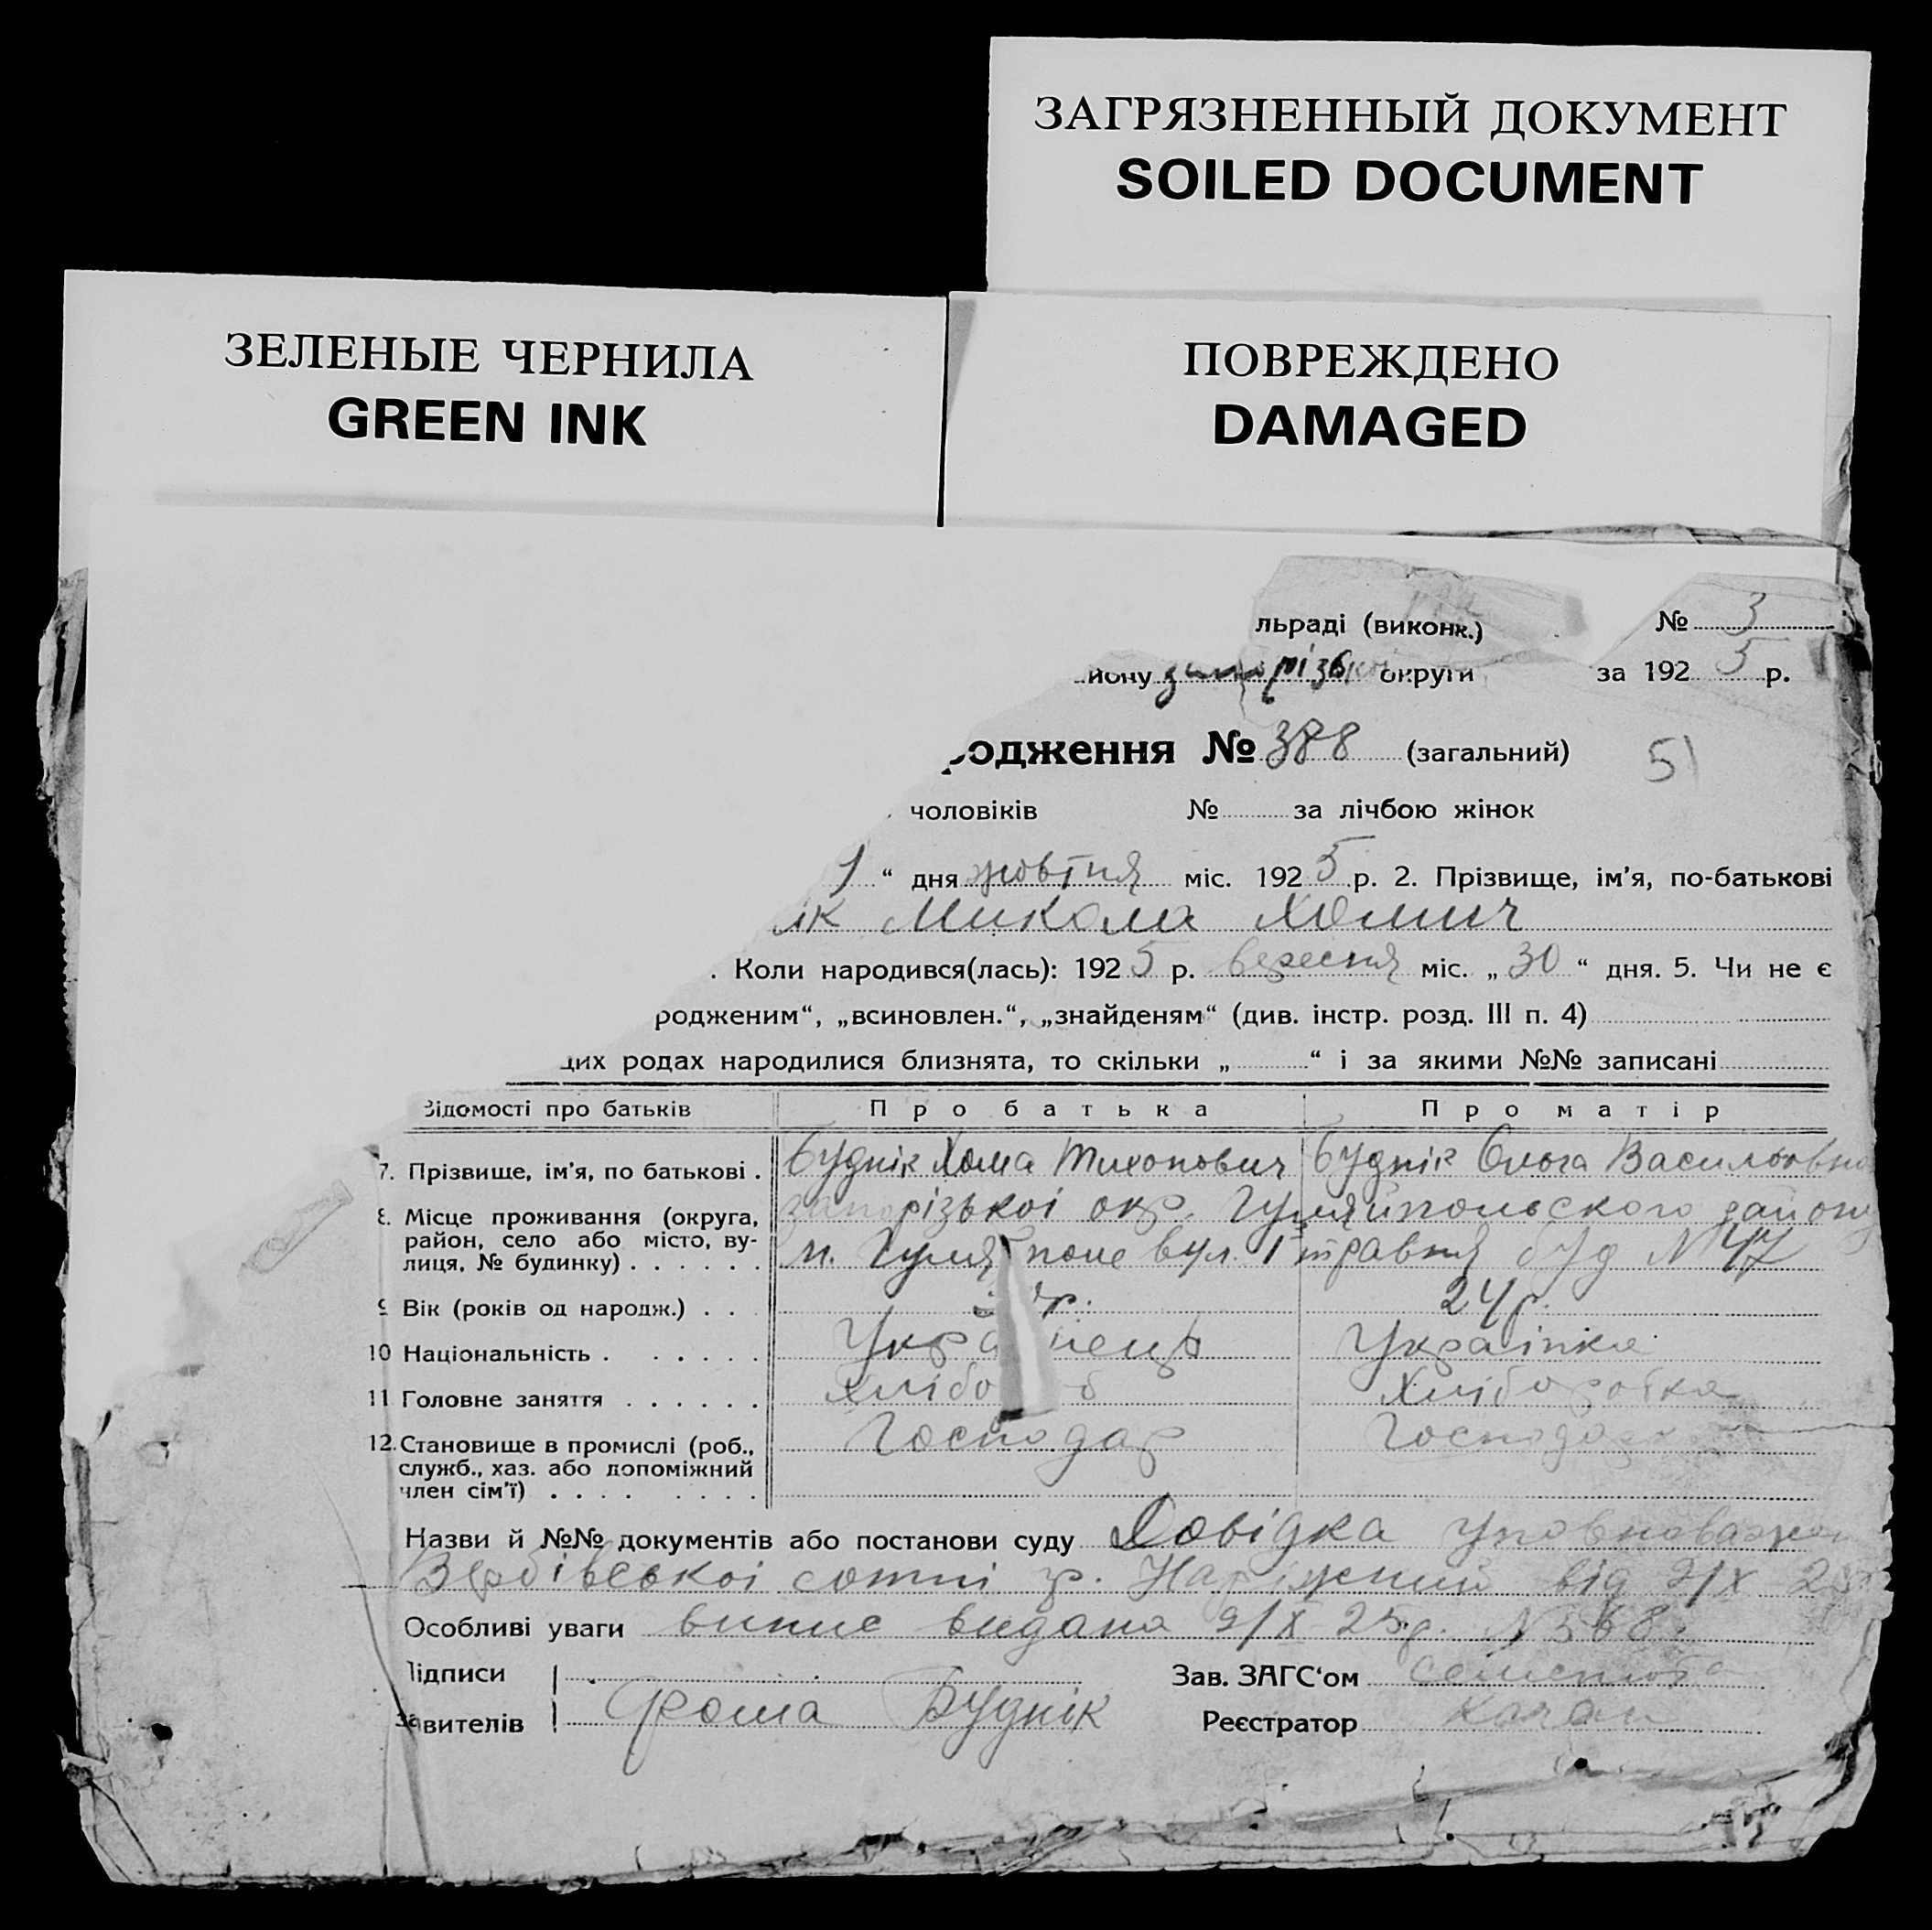 ЗАГРЯЗНЕННЫЙ ДОКУМЕНТ
SOILED DOCUMENT
ЗЕЛЕНЫЕ ЧЕРНИЛА
GREEN INK
ПОВРЕЖДЕНО
DAMAGED
льраді (виконк.) № 3
йону округи за 1925 р.
родження № 388 (загальний) 51
чоловіків № за лічбою жінок
1 “ дня жовтня міс. 1925 р. 2. Прізвище, ім’я, по-батькові
ік Микола Хомич
. Коли народився(лась): 1925 р. вересня міс. „ 30 “ дня. 5. Чи не є
родженим“, „всиновлен.“, „знайденям“ (див. інстр. розд. III п. 4)
цих родах народилися близнята, то скільки „ “ і за якими №№ записані
Відомості про батьків Про батька Про матір
7. Прізвище, ім’я, по батькові . Буднік Хома Тихонович Буднік Ольга Васильовна
8. Місце проживання (округа, запорізькоі окр. Гуляйпольского району
район, село або місто, ву-
лиця, № будинку) . . . . . . м. Гуляйполе вул. 1 травня буд № 47
9 Вік (років од народж.) . . р. 24 р.
10 Національність . . . . . . Українець Украінка
11 Головне заняття . . . . . . Хлібороб Хліборобка
12. Становище в промислі (роб., Господар Господарка
служб., хаз. або допоміжний
член сім’ї) . . . . . . . .
Назви й №№ документів або постанови суду Довідка уповноважен
Вербівськоі сотні гр. від 2/X 25
Особливі уваги випис видана 2/X 25р. № 568
Підписи Зав. ЗАГС‘ом
Заявителів Фома Буднік Реєстратор Качан